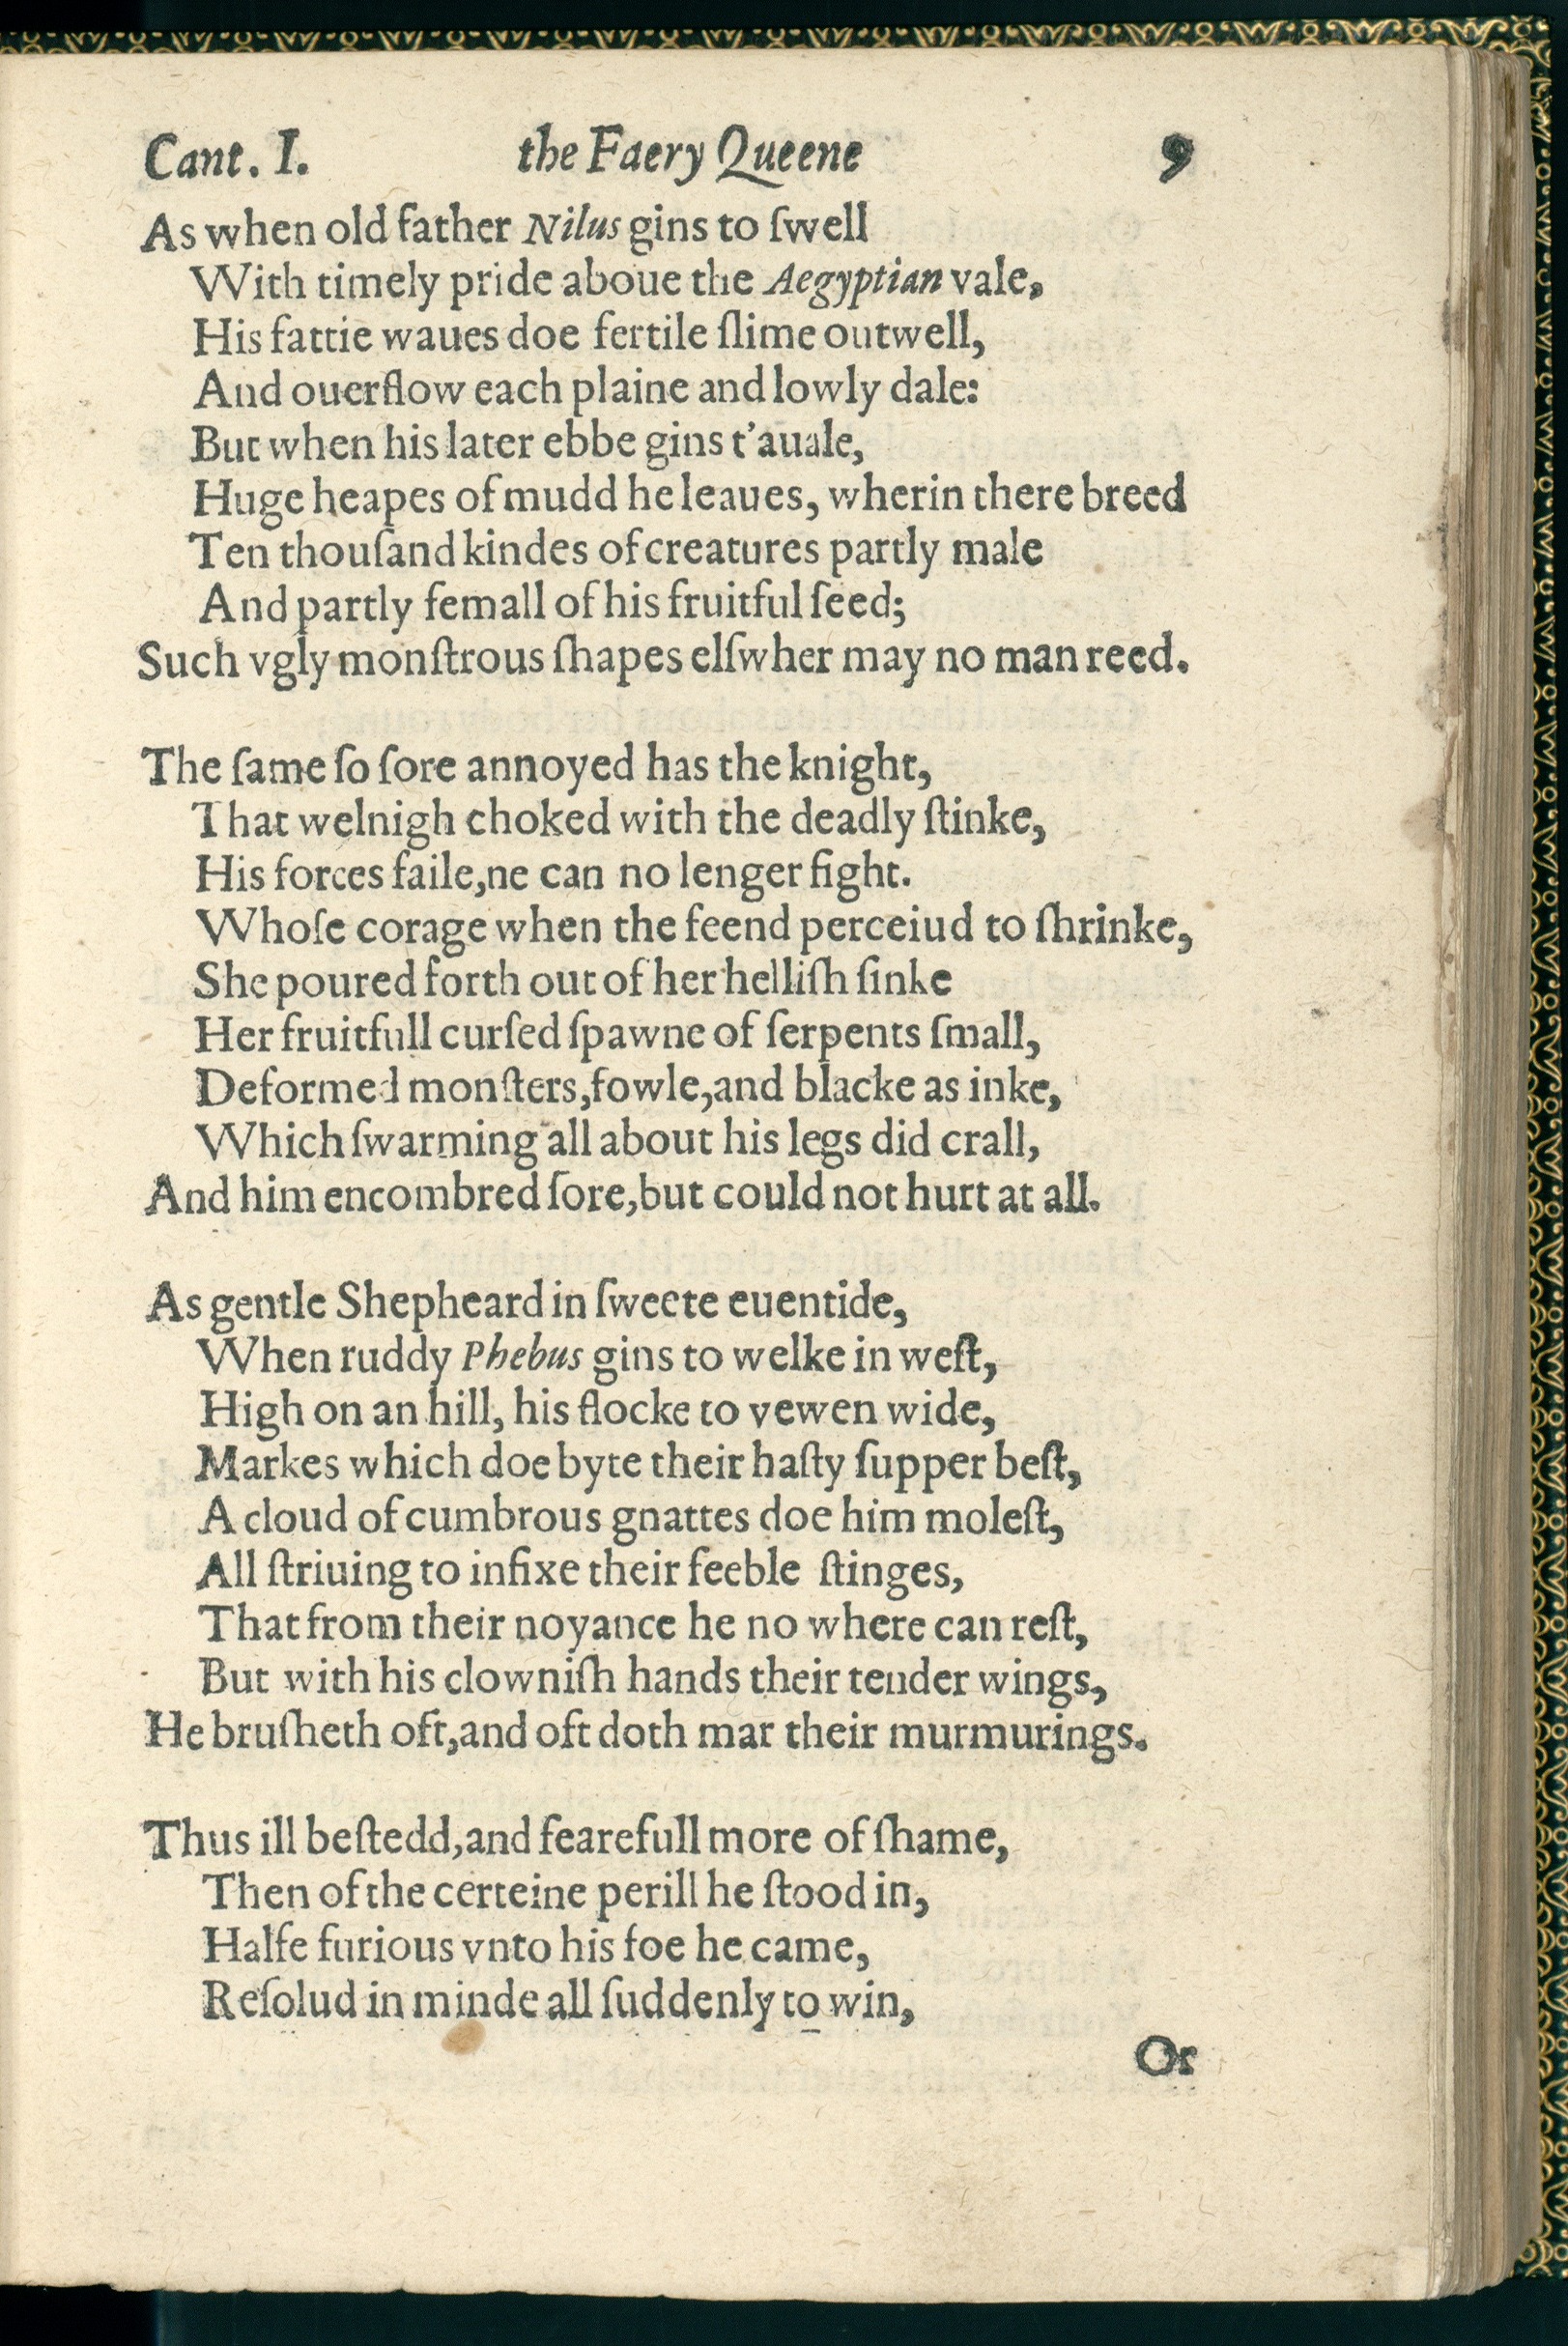 Cant. I. the Faery Queene 9
As when old father Nilus gins to ſwell
With timely pride aboue the Aegyptian vale,
His fattie waues doe fertile ſlime outwell,
And ouerflow each plaine and lowly dale:
But when his later ebbe gins t'auale,
Huge heapes of mudd he leaues, wherin there breed
Ten thouſand kindes of creatures partly male
And partly femall of his fruitful ſeed;
Such vgly monſtrous ſhapes elſwher may no man reed.
The ſame ſo ſore annoyed has the knight,
That welnigh choked with the deadly ſtinke,
His forces faile,ne can no lenger fight.
Whoſe corage when the feend perceiud to ſhrinke,
She poured forth out of her helliſh ſinke
Her fruitfull curſed ſpawne of ſerpents ſmall,
Deformed monſters,fowle,and blacke as inke,
Which ſwarming all about his legs did crall,
And him encombred ſore,but could not hurt at all.
As gentle Shepheard in ſweete euentide,
When ruddy Phebus gins to welke in weſt,
High on an hill, his flocke to vewen wide,
Markes which doe byte their haſty ſupper beſt,
A cloud of cumbrous gnattes doe him moleſt,
All ſtriuing to infixe their feeble ſtinges,
That from their noyance he no where can reſt,
But with his clowniſh hands their tender wings,
He bruſheth oft,and oft doth mar their murmurings.
Thus ill beſtedd,and fearefull more of ſhame,
Then of the certeine perill he ſtood in,
Halfe furious vnto his foe he came,
Reſolud in minde all ſuddenly to win,
Or